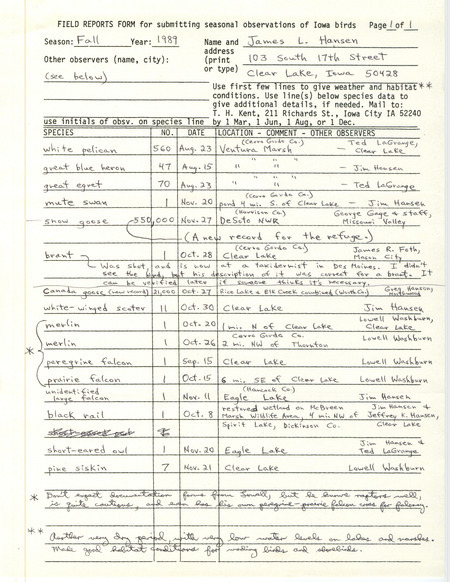 FIELD REPORTS FORM for submitting seasonal observations of Iowa birds Page 1 of 1
Season: Fall Year: 1989 Name and James L. Hansen
Other observers (name, city): address 103 South 17th Street
(print
(see below) or type) Clear Lake, Iowa 50428
Use first few lines to give weather and habitat**
conditions. Use line(s) below species data to
give additional details, if needed. Mail to:
T. H. Kent, 211 Richards St., Iowa City IA 52240
use initials of obsv. on species line by 1 Mar, 1 Jun, 1 Aug, or 1 Dec.
SPECIES NO. DATE LOCATION - COMMENT - OTHER OBSERVERS
(Cerro Gordo Co.)
white pelican 560 Aug. 23 Ventura Marsh - Ted LaGrange, Clear Lake
great blue heron 47 Aug. 15 " " - Jim Hansen
great egret 70 Aug. 23 " " - Ted LaGrange
(Cerro Gordo Co.)
mute swan 1 Nov. 20 pond 4 mi. S. of Clear Lake - Jim Hansen
(Harrison Co.)
snow goose 550,000 Nov. 27 DeSoto NWR George Gage & staff, Missouri Valley
(A new record for the refuge.)
(Cerro Gordo Co.)
brant 1 Oct. 28 Clear Lake James R. Foth, Mason City
Was shot, and is now at a taxidermist in Des Moines. I didn't
see the bird, but his description of it was correct for a brant. It
can be verified later if someone thinks it's necessary.
Canada goose (new record) 21,000 Oct. 27 Rice Lake & Elk Creek combined (Worth Co.) Greg Hanson, Northwood
white-winged scoter 11 Oct. 30 Clear Lake Jim Hansen
merlin 1 Oct. 20 1 mi. N of Clear Lake Lowell Washburn, Clear Lake
Cerro Gordo Co.
* merlin 1 Oct. 26 2 mi. NW of Thornton Lowell Washburn
peregrine falcon 1 Sep. 15 Clear Lake Lowell Washburn
prairie falcon 1 Oct. 15 6 mi. SE of Clear Lake Lowell Washburn
unidentified (Hancock Co.)
large falcon 1 Nov. 11 Eagle Lake Jim Hansen
black rail 1 Oct. 8 restored wetland on McBreen Jim Hansen &
Marsh Wildlife Area, 4 mi. NW of Jeffrey K. Hansen,
Spirit Lake, Dickinson Co. Clear Lake
short-eared owl 1 Nov. 20 Eagle Lake Jim Hansen & Ted LaGrange
pine siskin 7 Nov. 21 Clear Lake Lowell Washburn
* Don't expect documentation forms from Lowell, but he knows raptors well,
is quite cautious, and even has his own peregrine-prairie falcon cross for falconry.
** Another very dry period, with very low water levels on lakes and marshes.
Made good habitat conditions for wading birds and shorebirds.